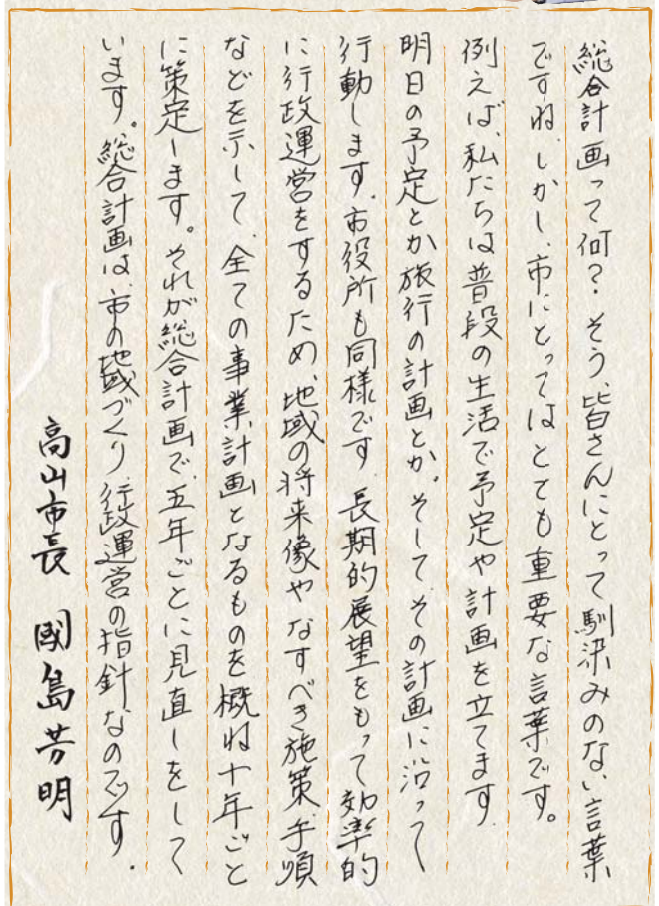 総合計画って何?そう、皆さんにとって馴染みのない言葉
ですね。しかし、市にとってはとても重要な言葉です。
例えば、私たちは普段の生活で予定や計画を立てます。
明日の予定とか旅行の計画とか。そして、その計画に沿って
行動します。市役所も同様です。長期的展望をもって効率的
に行政運営をするため、地域の将来像やなすべき施策、手順
などを示して、全ての事業計画となるものを概ね十年ごと
に策定します。それが総合計画で、五年ごとに見直しをして
います。総合計画は、市の地域づくり、行政運営の指針なのです。
高山市長 國島芳明